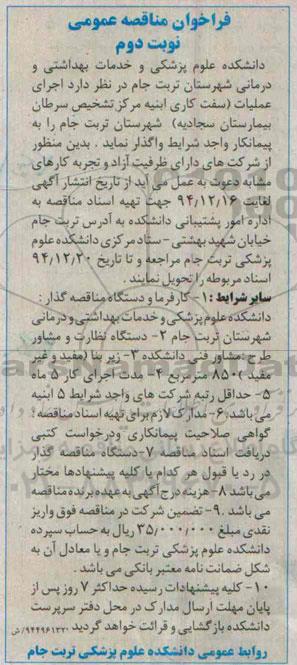 فراخوان مناقصه عمومی
نوبت دوم
دانشکده علوم پزشکی و خدمات بهداشتی و
درمانی شهرستان تربت جام در نظر دارد اجرای
عملیات (سفت کاری ابنیه مرکز تشخیص سرطان
بیمارستان سجادیه) شهرستان تربت جام را به
پیمانکار واجد شرایط واگذار نماید . بدین منظور
از شرکت های دارای ظرفیت آزاد و تجربه کارهای
مشابه دعوت به عمل می آید از تاریخ انتشار آگهی
لغایت ۹۴/۱۲/۱۶ جهت تهیه اسناد مناقصه به
اداره امور پشتیبانی دانشکده به آدرس تربت جام
خیابان شهید بهشتی - ستاد مرکزی دانشکده علوم
پزشکی تربت جام مراجعه و تا تاریخ ۹۴/۱۲/۲۰
اسناد مربوطه را تحویل نمایند .
سایر شرایط : ۱- کارفرما و دستگاه مناقصه گذار :
دانشکده علوم پزشکی و خدمات بهداشتی و درمانی
شهرستان تربت جام ۲- دستگاه نظارت و مشاور
طرح :مشاور فنی دانشکده ۳- زیر بنا (مفید و غیر
مفید) ۸۵۰ مترمربع ۴- مدت اجرای کار ۵ ماه
۵- حداقل رتبه شرکت های واجد شرایط ۵ ابنیه
می باشد. ۶- مدارک لازم برای تهیه اسناد مناقصه:
گواهی صلاحیت پیمانکاری و درخواست کتبی
دریافت اسناد مناقصه ۷- دستگاه مناقصه گذار
در رد یا قبول هر کدام یا کلیه پیشنهادها مختار
می باشد ۸- هزینه درج آگهی به عهده برنده مناقصه
می باشد .۹- تضمین شرکت در مناقصه فوق واریز
نقدی مبلغ ۳۵/۰۰۰/۰۰۰ ریال به حساب سپرده
دانشکده علوم پزشکی تربت جام و یا معادل آن به
شکل ضمانت نامه معتبر بانکی می باشد .
۱۰- کلیه پیشنهادات رسیده حداکثر ۷ روز پس از
پایان مهلت ارسال مدارک در محل دفتر سرپرست
دانشکده بازگشایی و قرائت خواهد گردید ۹۴۴۹۶۱۳۲۰/ش
روابط عمومی دانشکده علوم پزشکی تربت جام